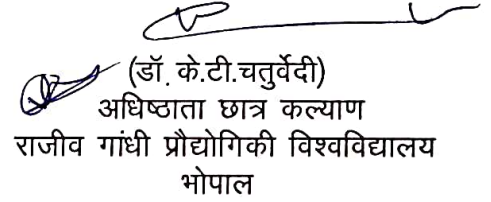 (डॉ. के.टी.चतुर्वेदी)
अधिष्ठाता छात्र कल्याण
राजीव गांधी प्रौद्योगिकी विश्वविद्यालय
भोपाल